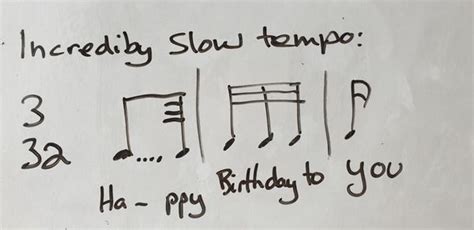 Incrediby Slow tempo:
3
32
Ha - ppy Birthday to you